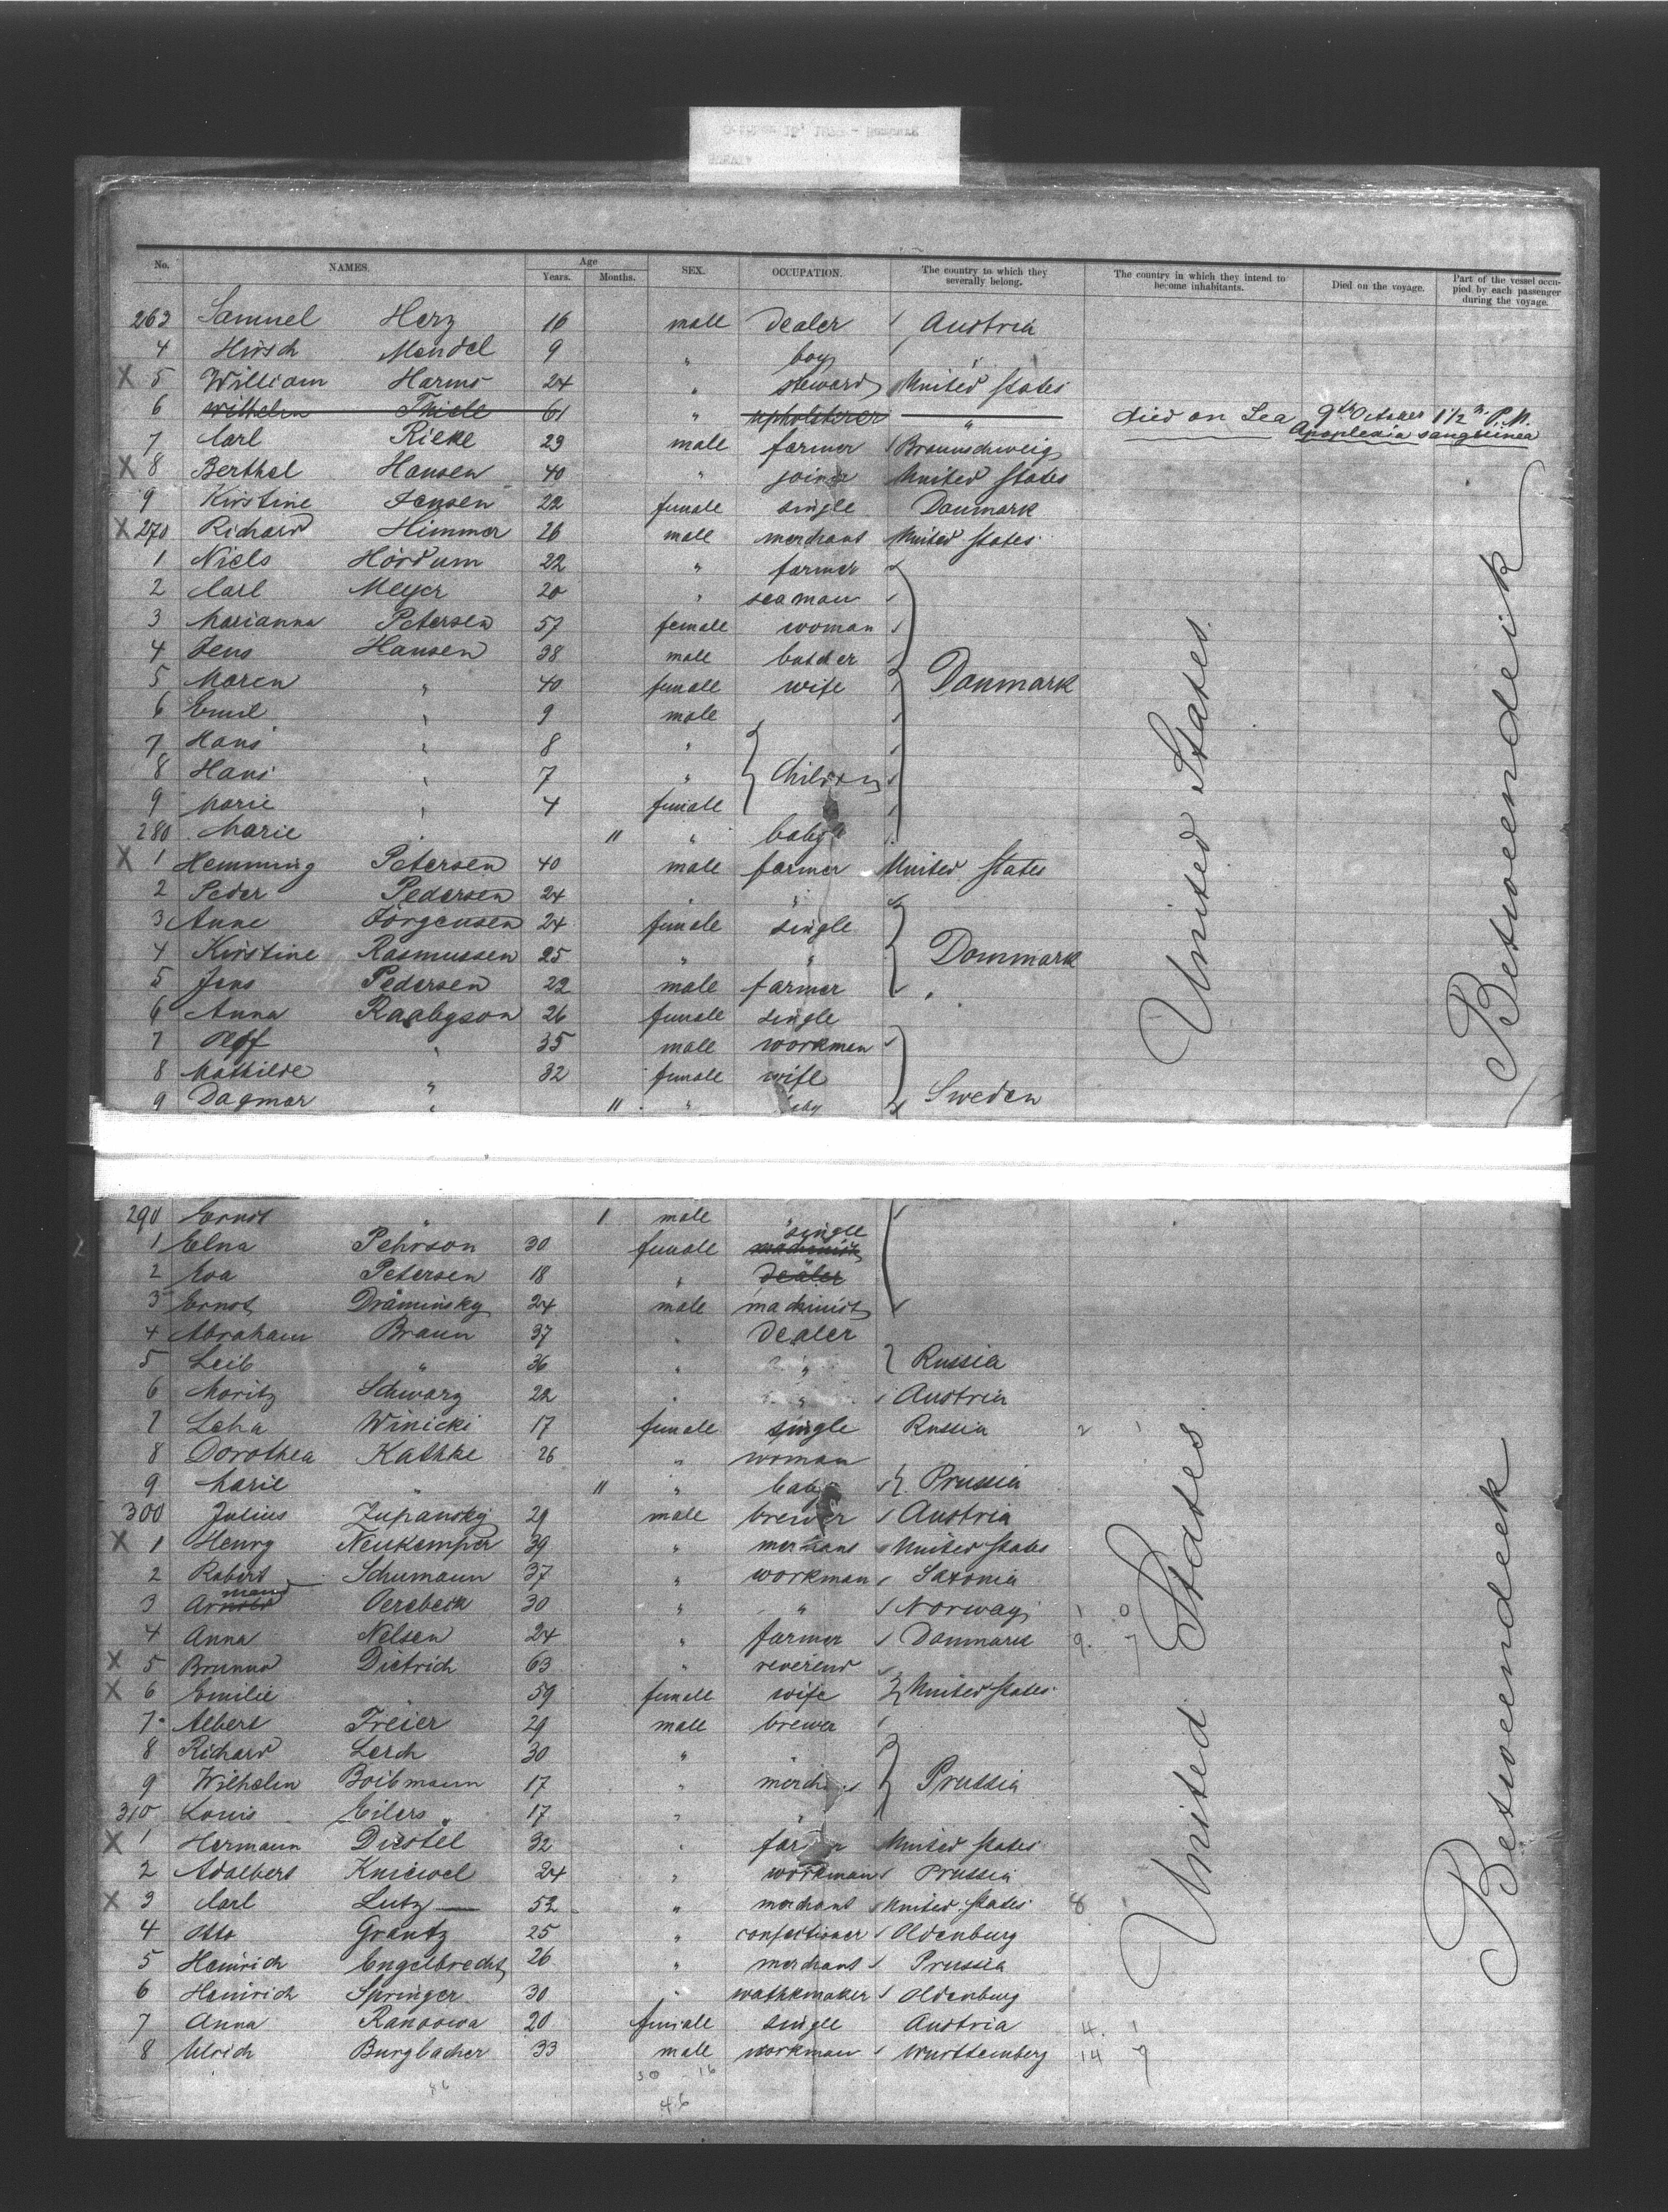 No. NAMES. Age Years. Months. SEX. OCCUPATION. The country to which they severally belong. The country in which they intend to become inhabitants. Died on the voyage. Part of the vessel occupied by each passenger during the voyage.
263 Samuel Herz 16 male dealer Austria
4 Hirsch Mendel 9 " boy "
X 5 William Harms 24 " steward United States
6 Wilhelm Thiele 61 " upholsterer " died on Sea 9th October 1 1/2 h P.M. Apoplexia sanguinea
7 Carl Rieke 29 male farmer Braunschweig
X 8 Berthel Hansen 40 " joiner United States
9 Kirstine Jensen 22 female single Danmark
X 270 Richard Himmer 26 male merchant United States
1 Niels Hördum 22 " farmer
2 Carl Meyer 20 " seaman
3 Marianna Petersen 57 female woman
4 Jens Hansen 38 male butcher
5 Maren " 40 female wife Danmark
6 Emil " 9 male
7 Hans " 8 "
8 Hans " 7 " Children
9 Marie " 4 female
280 Marie " 11 " baby
X 1 Hemming Petersen 40 male farmer United States
2 Peder Pedersen 24 " "
3 Anne Jörgensen 24 female single
4 Kirstine Rasmussen 25 " " Danmark
5 Jens Pedersen 22 male farmer
6 Anna 26 female single
7 " 35 male workman
8 Mathilde " 32 female wife
9 Dagmar " 11 " baby Sweden
United States
Betweendeck
290 Ernst " 1 male
1 Elna Pehrson 30 female machinist single
2 Eva Petersen 18 " dealer
3 Ernst Dräminsky 24 male machinist
4 Abraham Braun 37 " dealer
5 Leib " 36 " " Russia
6 Moritz Schwarz 22 " " Austria
7 Leha Winicki 17 female single Russia
8 Dorothea Kathke 26 " woman
9 Marie " 11 " baby Prussia
300 Julius Zupansky 29 male brewer Austria
X 1 Henry Neukemper 39 " merchant United States
2 Robert Schumann 37 " workman Saxonia
3 Arnold mand 30 " " Norway
4 Anna Nelsen 24 " farmer Danmark
X 5 Brunno Dietrich 63 " reverend
X 6 Emilie 59 female wife United States
7 Albert Freier 29 male brewer
8 Richard Lerch 30 " "
9 Wilhelm Boibmann 17 " merchant Prussia
310 Louis Eilers 17 "
X 1 Hermann Diestel 32 " farmer United States
2 Adalbert Kniewel 24 " workman Prussia
X 3 Carl Lutz 52 " merchant United States 8
4 Otto Grantz 25 " confectioner Oldenburg
5 Heinrich Engelbrecht 26 " merchant Prussia
6 Heinrich Springer 30 " wathkmaker Oldenburg
7 Anna Ranoowa 20 female single Austria 4. 1
8 Ulrich Burgbacher 33 male workman Wurttemberg 14 7
United States
Betweendeck
30 16
46 46